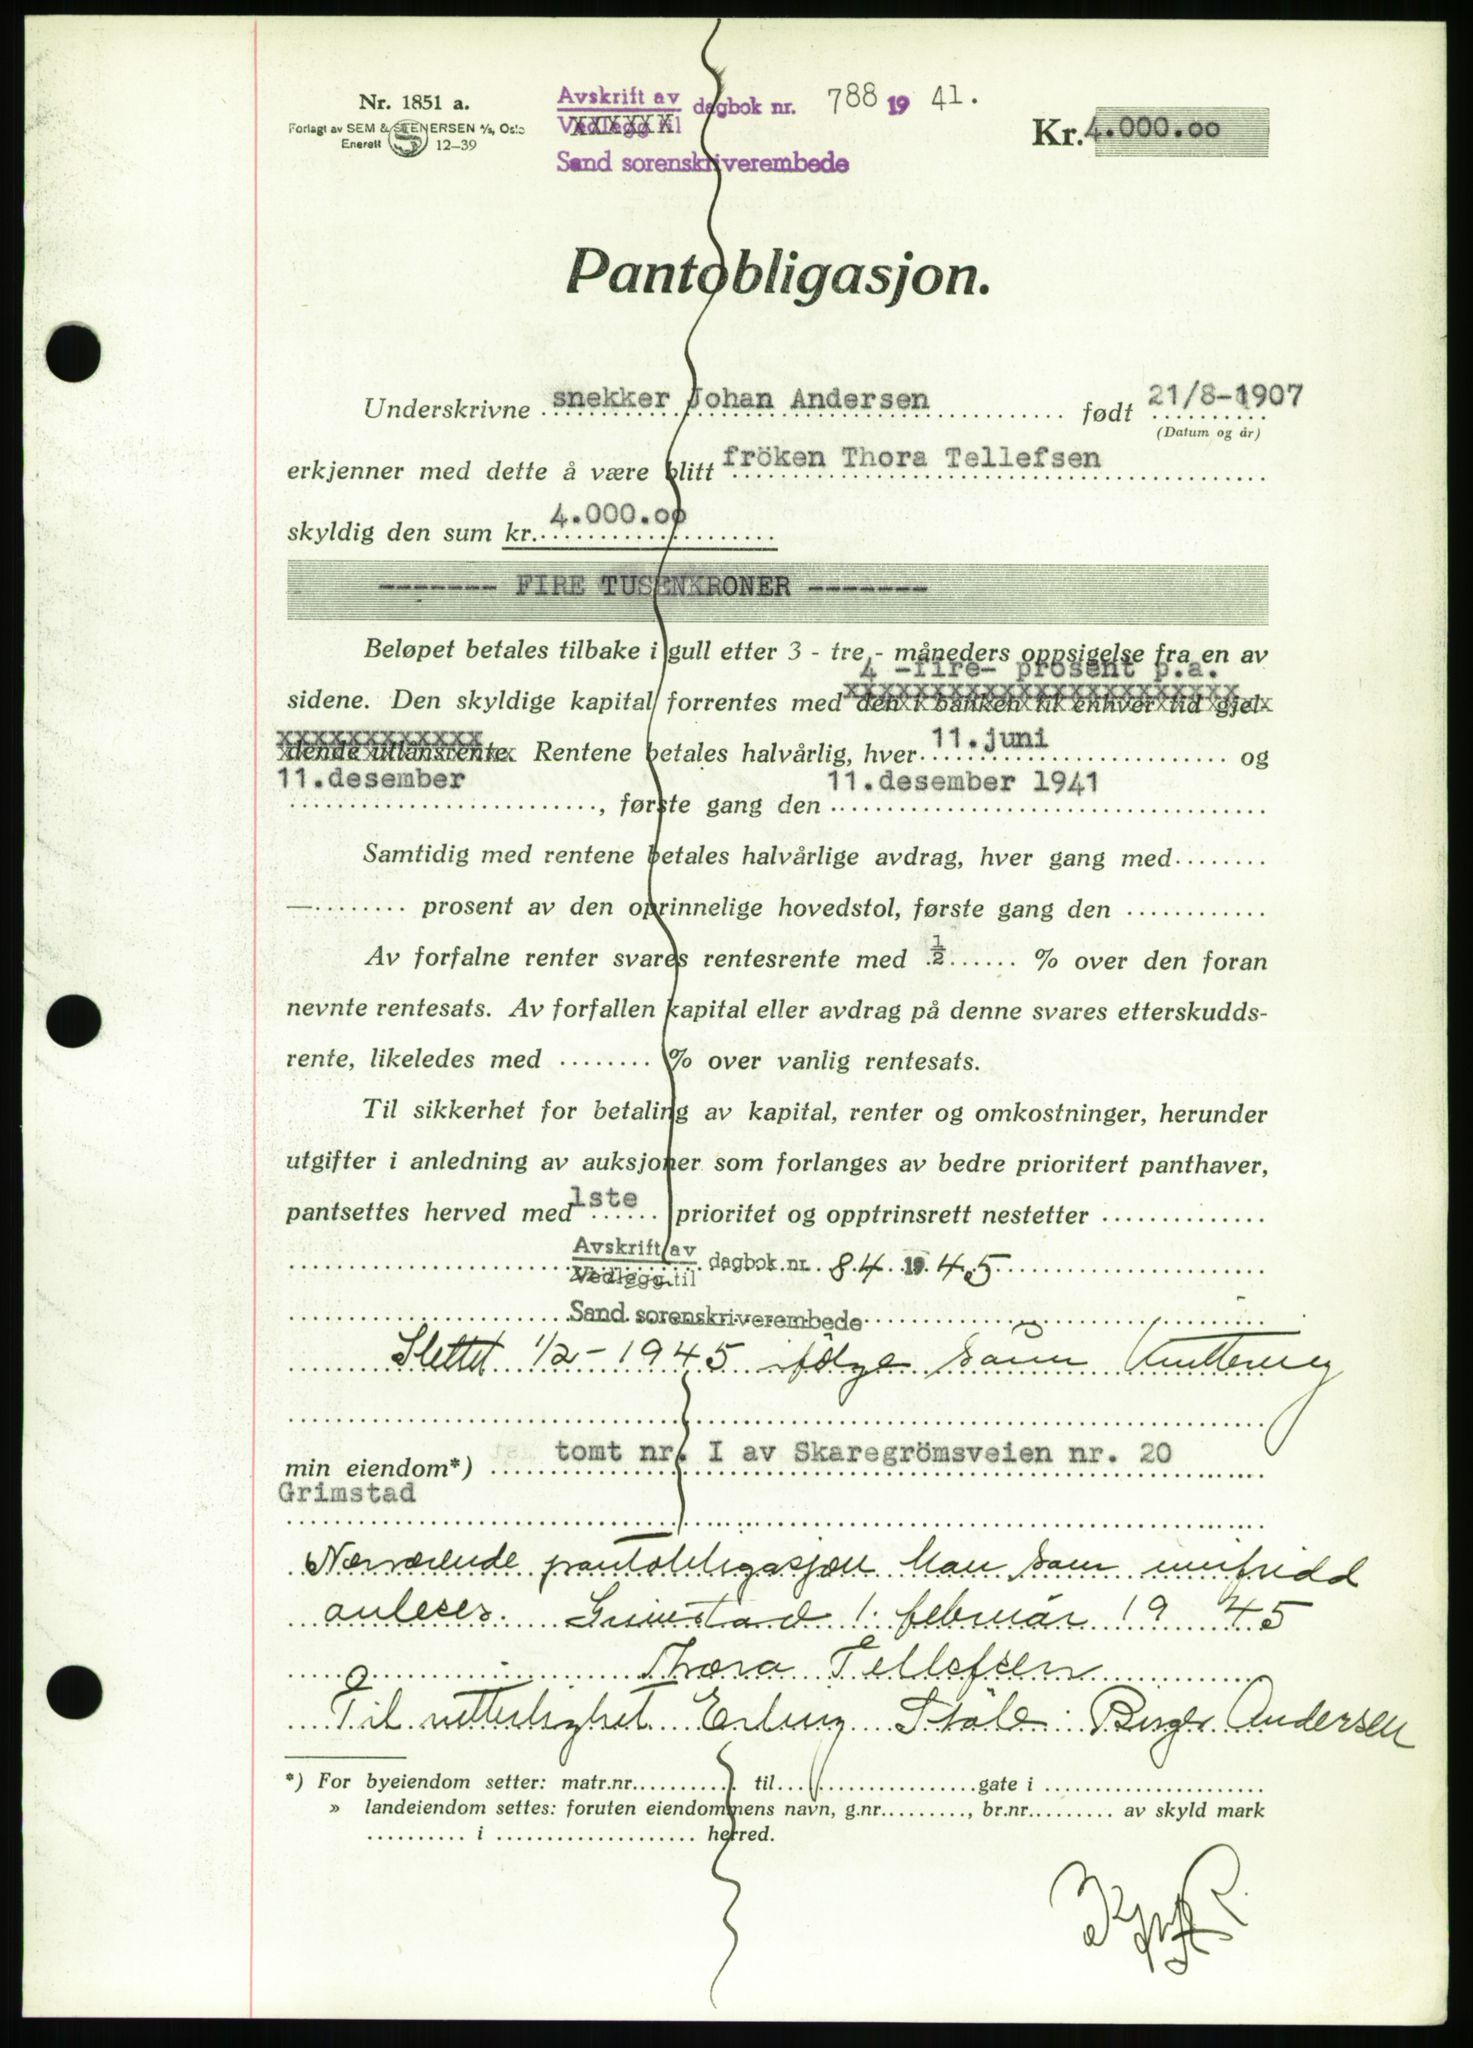 Nr. 1851 a.
Forlagt av SEM & STENERSEN A/S, Oslo
Enerett 12–39
Avskrift av dagbok nr. 788 19 41.
Vedlegg til
Sand sorenskriverembede
Kr. 4.000.oo
Pantobligasjon.
Underskrivne snekker Johan Andersen født 21/8-1907
(Datum og år)
erkjenner med dette å være blitt fröken Thora Tellefsen
skyldig den sum kr. 4.000.oo
------- FIRE TUSENKRONER -------
Beløpet betales tilbake i gull etter 3 - tre - måneders oppsigelse fra en av
4 -fire- prosent p.a.
sidene. Den skyldige kapital forrentes med den i banken til enhver tid gjel-
dende utlånsrente. Rentene betales halvårlig, hver 11.juni og
11.desember, første gang den 11.desember 1941
Samtidig med rentene betales halvårlige avdrag, hver gang med
— prosent av den oprinnelige hovedstol, første gang den
Av forfalne renter svares rentesrente med ½ % over den foran
nevnte rentesats. Av forfallen kapital eller avdrag på denne svares etterskudds-
rente, likeledes med % over vanlig rentesats.
Til sikkerhet for betaling av kapital, renter og omkostninger, herunder
utgifter i anledning av auksjoner som forlanges av bedre prioritert panthaver,
pantsettes herved med 1ste prioritet og opptrinsrett nestetter
Avskrift av dagbok nr. 84 19 45
Vedlegg til
Sand sorenskriverembede
Slettet 1/2-1945 ifølge sån kvittering
min eiendom*) tomt nr. I av Skaregrömsveien nr. 20
Grimstad
Nærværende pantobligasjon kan som innfridd
avleses. Grimstad 1. februar 19 45
Thora Tellefsen
Til vitterlighet Erling Støle Birger Andersen
*) For byeiendom setter: matr.nr. til gate i
» landeiendom settes: foruten eiendommens navn, g.nr., br.nr. av skyld mark
i herred.